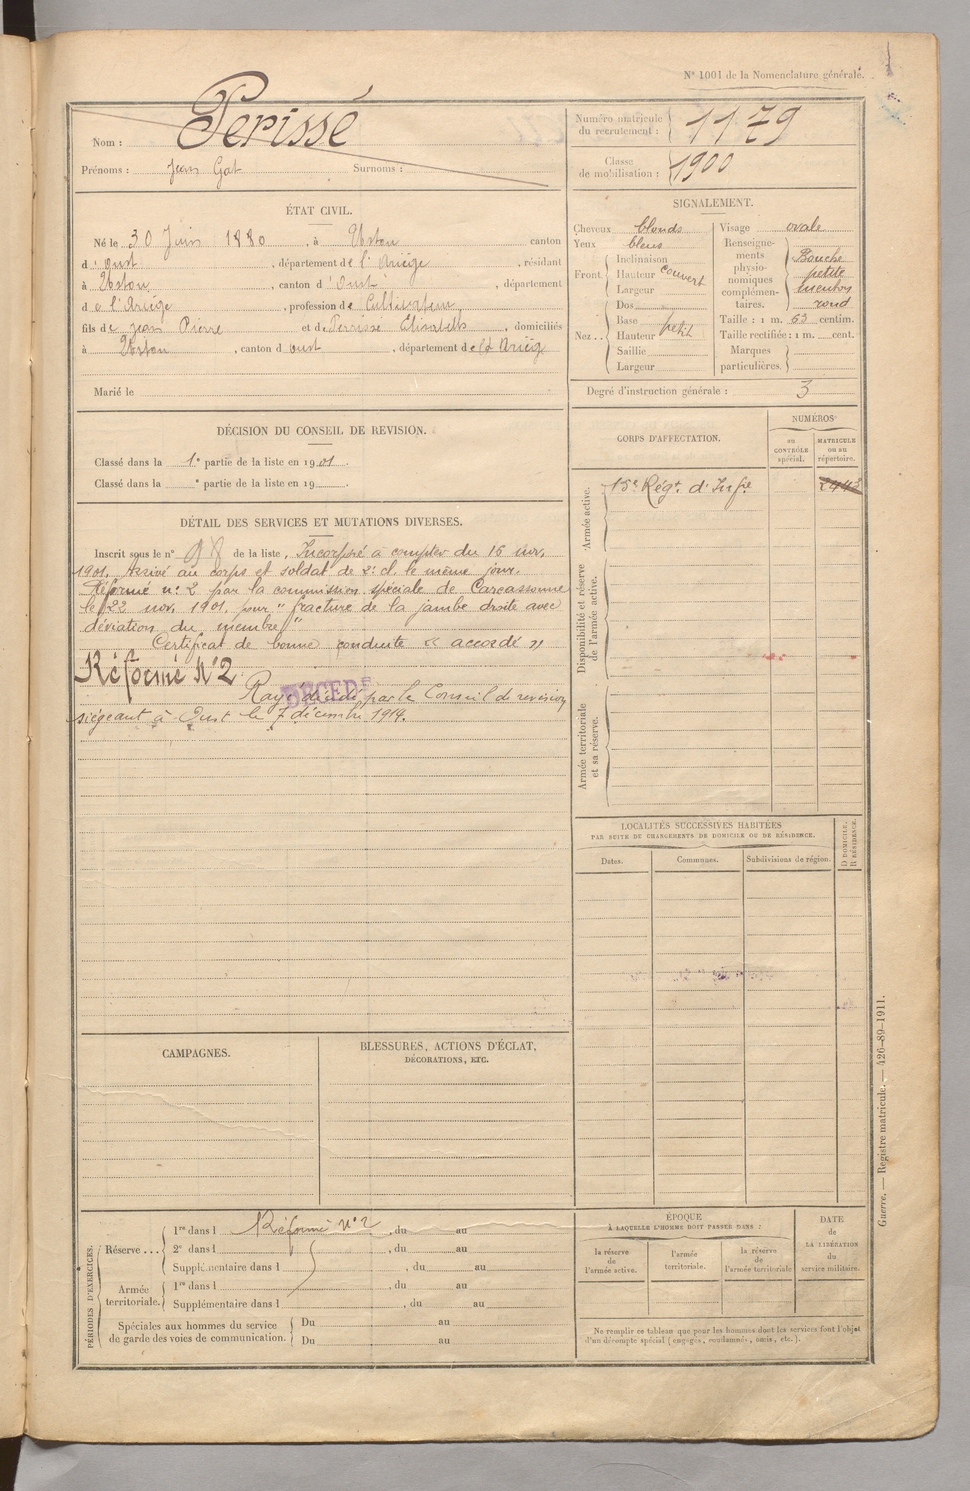 N° 1001 de la Nomenclature générale.
Nom : Perissé
Prénoms : Jean Gat Surnoms :
Numéro matricule du recrutement : 1179
Classe de mobilisation : 1900
ÉTAT CIVIL.
Né le 30 Juin 1880, à Ustou canton
d'Oust, département de l'Ariège, résidant
à Ustou, canton d'Oust, département
de l'Ariège, profession de Cultivateur,
fils de Jean Pierre et de Perrisse Elisabeth, domiciliés
à Ustou, canton d oust, département de l'Arièg
Marié le
SIGNALEMENT.
Cheveux blonds
Yeux bleus
Front Inclinaison
Hauteur couvert
Largeur
Nez Dos
Base
Hauteur petit
Saillie
Largeur
Visage ovale
Renseignements physionomiques complémentaires. Bouche petite menton rond
Taille : 1 m. 63 centim.
Taille rectifiée : 1 m. cent.
Marques particulières.
Degré d'instruction générale : 3
DÉCISION DU CONSEIL DE REVISION.
Classé dans la 1e partie de la liste en 1901.
Classé dans la e partie de la liste en 19 .
DÉTAIL DES SERVICES ET MUTATIONS DIVERSES.
Inscrit sous le n° 98 de la liste. Incorporé à compter du 16 nov.
1901. Arrivé au corps et soldat de 2e cl. le même jour.
Réformé n° 2 par la commission spéciale de Carcassonne
le 22 nov. 1901, pour " fracture de la jambe droite avec
déviation du membre "
Certificat de bonne conduite « accordé »
Réformé N° 2
DÉCÉDÉ
Rayé décédé par le Conseil de revision
siégeant à Oust le 7 décembre 1914.
CORPS D'AFFECTATION.
NUMÉROS
au CONTRÔLE spécial.
MATRICULE ou au répertoire.
Armée active.
15e Régt. d'Infie 2443
Disponibilité et réserve de l'armée active.
Armée territoriale et sa réserve.
LOCALITÉS SUCCESSIVES HABITÉES
PAR SUITE DE CHANGEMENTS DE DOMICILE OU DE RÉSIDENCE.
Dates. Communes. Subdivisions de région.
D DOMICILE. R RÉSIDENCE.
CAMPAGNES.
BLESSURES, ACTIONS D'ÉCLAT,
DÉCORATIONS, ETC.
PÉRIODES D'EXERCICES.
Réserve... 1re dans l Réformé N° 2, du au
2e dans l , du au
Supplémentaire dans l , du au
Armée territoriale. 1re dans l , du au
Supplémentaire dans l , du au
Spéciales aux hommes du service de garde des voies de communication. Du au
Du au
ÉPOQUE
À LAQUELLE L'HOMME DOIT PASSER DANS :
la réserve de l'armée active.
l'armée territoriale.
la réserve de l'armée territoriale
DATE de LA LIBÉRATION du service militaire.
Ne remplir ce tableau que pour les hommes dont les services font l'objet
d'un décompte spécial (engagés, condamnés, omis, etc.).
Guerre. — Registre matricule. — 426-89-1911.